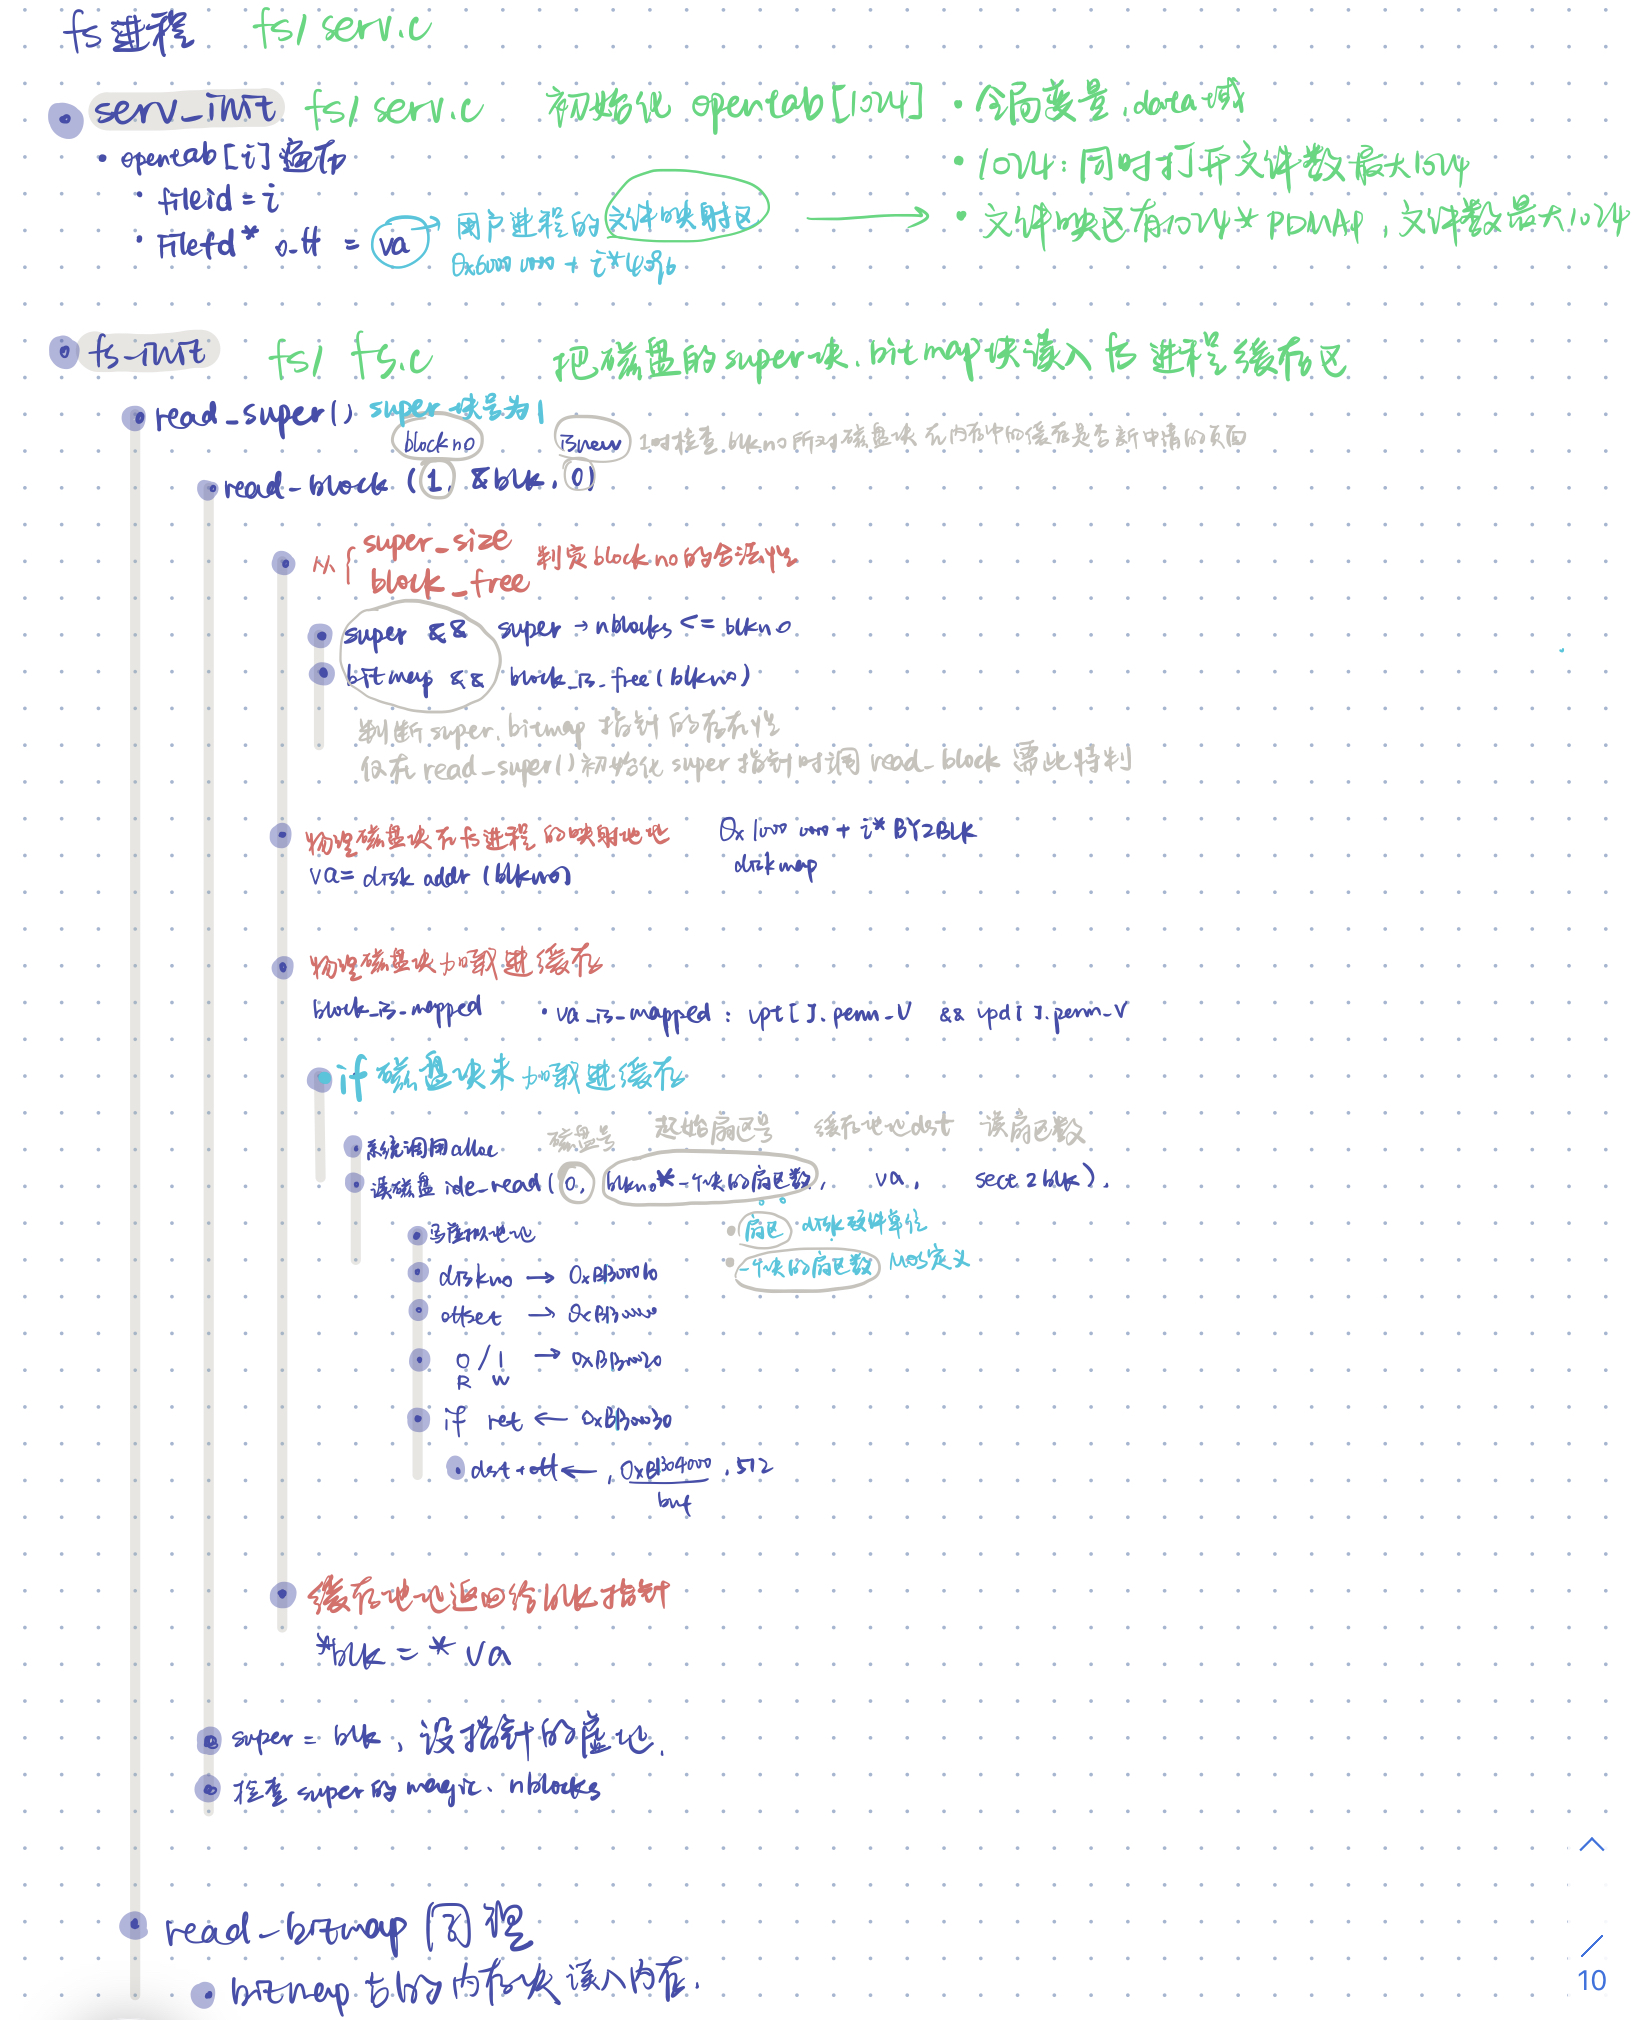 fs进程 fs/serv.c
serv_init fs/serv.c 初始化 opentab[1024] · 全局变量 .data域
· opentab[i]遍历
· 1024:同时打开文件数最大1024
· fileid = i
· Filefd* o_ff = va → 用户进程的文件映射区 → · 文件映区有1024*PDMAP,文件数最大1024
0x6000 0000 + i*4096
fs_init fs/fs.c 把磁盘的super块、bitmap块读入fs进程缓存区
read_super() super块号为1
blockno isnew 1时检查blkno所对磁盘块在内存中的缓存是否新申请的页面
read_block (1, &blk, 0)
从 { super_size
block_free
判定blockno的合法性
super && super→nblocks <= blkno
bitmap && block_is_free(blkno)
判断super、bitmap指针的存在性
仅在read_super()初始化super指针时调read_block 需此特判
物理磁盘块在fs进程的映射地址 0x1000 0000 + i* BY2BLK
va= disk addr (blkno) diskmap
物理磁盘块加载进缓存
block_is_mapped · va_is_mapped : vpt[ ].perm_V && vpd[ ].perm_V
if 磁盘块未加载进缓存
磁盘号 起始扇区号 缓存地址dst 读扇区数
系统调用alloc
读磁盘 ide_read( 0, blkno*一个块的扇区数, va, sect2blk).
写虚拟地址 扇区 disk硬件单位
diskno → 0xB3000010 一个块的扇区数 MOS定义
offset → 0xB3000000
0 / 1 → 0xB3000020
R W
if ret ← 0xB3000030
dst+off ← , 0xB3004000 , 512
buf
缓存地址返回给blk指针
*blk = * va
super = blk, 设指针的虚地.
检查super的magic、nblocks
read_bitmap 同理
bitmap 占的内存块读入内存.
10